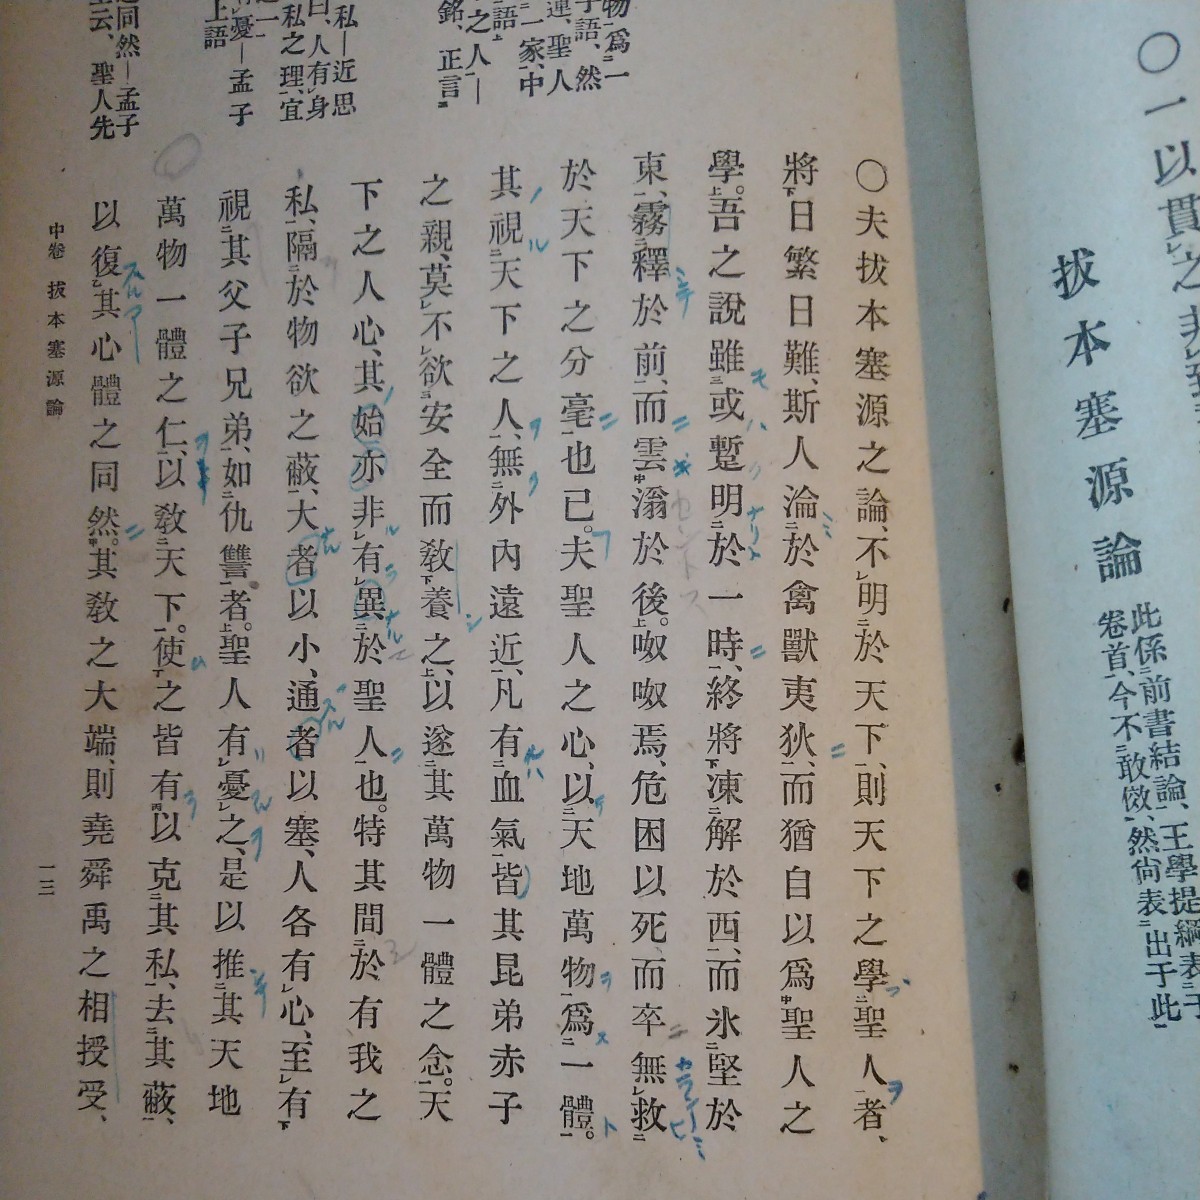 〇一以貫之
拔本塞源論
此係前書結論、王學提綱表于
卷首、今不敢傚、然尙表出于此
〇夫拔本塞源之論、不明於天下、則天下之學聖人者、
將日繁日難、斯人淪於禽獸夷狄、而猶自以爲聖人之
學。吾之說雖或蹔明於一時、終將凍解於西、而氷堅於
東、霧釋於前、而雲滃於後。呶呶焉、危困以死、而卒無救
於天下之分毫也已。夫聖人之心、以天地萬物爲一體。
其視天下之人、無外內遠近、凡有血氣皆其昆弟赤子
之親、莫不欲安全而敎養之、以遂其萬物一體之念。天
下之人心、其始亦非有異於聖人也。特其間於有我之
私、隔於物欲之蔽、大者以小、通者以塞、人各有心、至有
視其父子兄弟、如仇讐者。聖人有憂之、是以推其天地
萬物一體之仁、以敎天下。使之皆有以克其私、去其蔽、
以復其心體之同然。其敎之大端、則堯舜禹之相授受、
物爲一
子語、然
連、聖人
一家、中
語
之人—
銘、正言
私—近思
曰、人有身
私之理、宜
憂—孟子
上語
同然—孟子
云、聖人先
中卷 拔本塞源論
一三